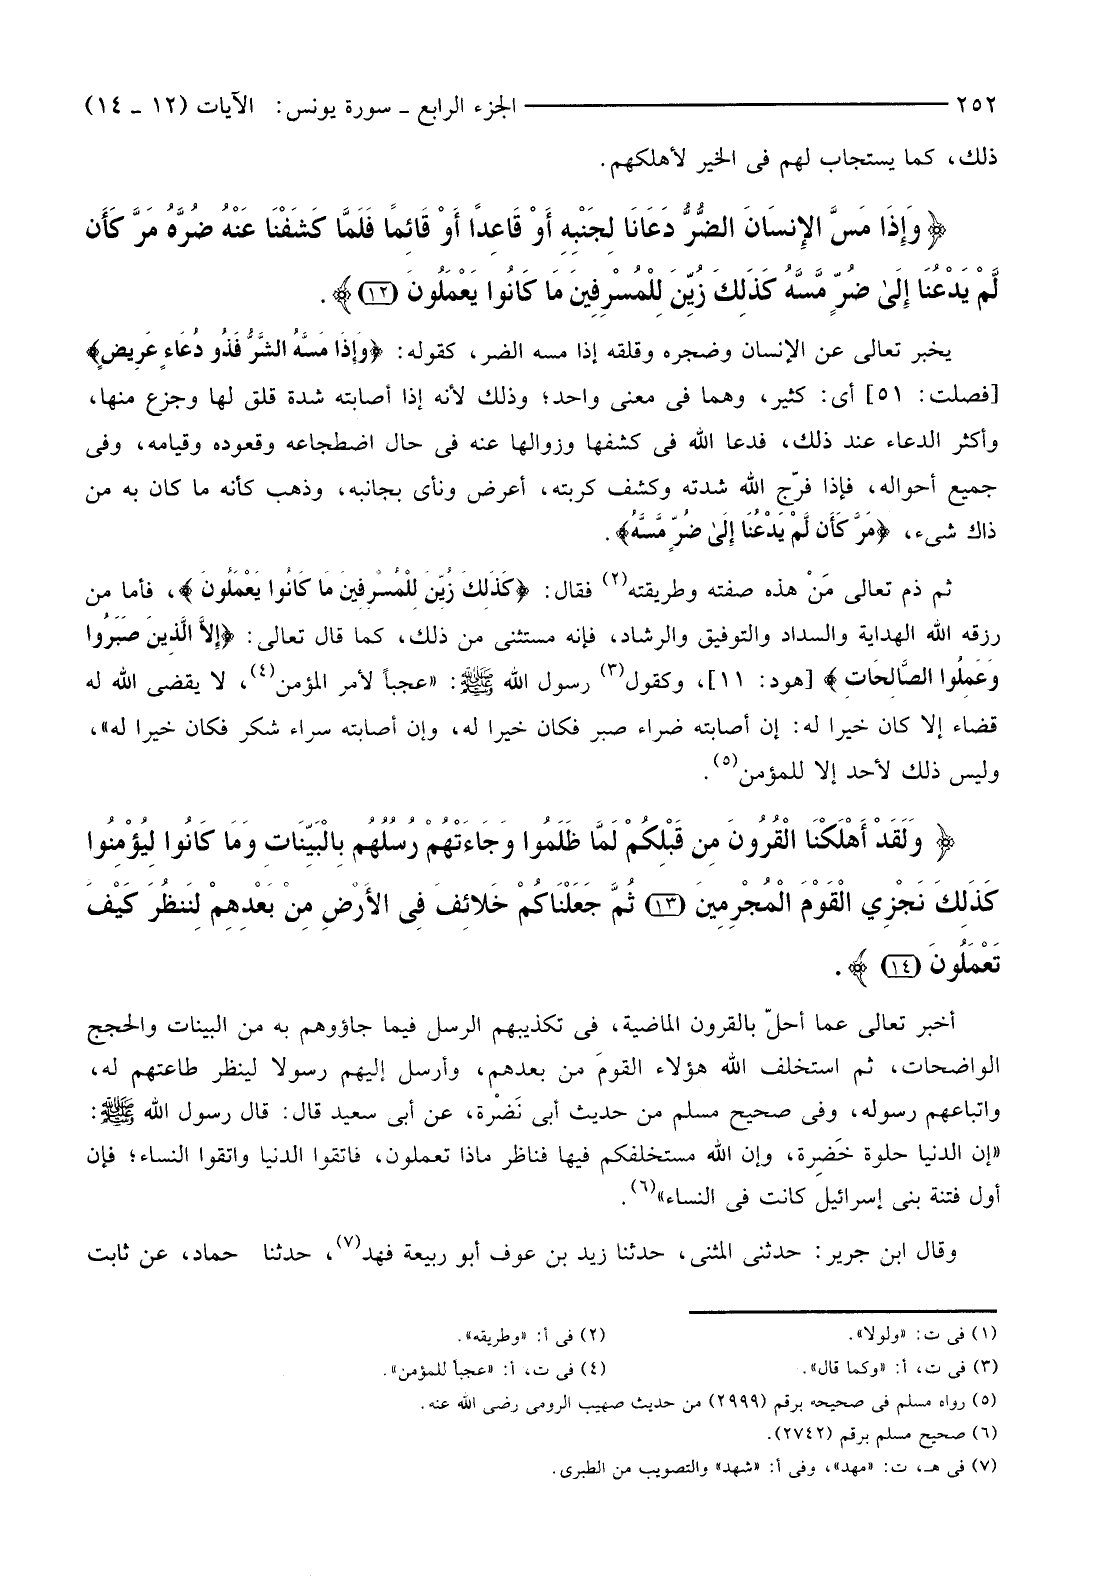 ٢٥٢ ـــــــــ الجزء الرابع ـ سورة يونس: الآيات (١٢ ـ ١٤)
ذلك، كما يستجاب لهم فى الخير لأهلكهم.
﴿وَإِذَا مَسَّ الإِنسَانَ الضُّرُّ دَعَانَا لِجَنْبِهِ أَوْ قَاعِداً أَوْ قَائِماً فَلَمَّا كَشَفْنَا عَنْهُ ضُرَّهُ مَرَّ كَأَن
لَّمْ يَدْعُنَا إِلَىٰ ضُرٍّ مَّسَّهُ كَذَلِكَ زُيِّنَ لِلْمُسْرِفِينَ مَا كَانُوا يَعْمَلُونَ (١٢)﴾.
يخبر تعالى عن الإنسان وضجره وقلقه إذا مسه الضر، كقوله: ﴿وَإِذَا مَسَّهُ الشَّرُّ فَذُو دُعَاءٍ عَرِيضٍ﴾
[فصلت: ٥١] أى: كثير، وهما فى معنى واحد؛ وذلك لأنه إذا أصابته شدة قلق لها وجزع منها،
وأكثر الدعاء عند ذلك، فدعا الله فى كشفها وزوالها عنه فى حال اضطجاعه وقعوده وقيامه، وفى
جميع أحواله، فإذا فرّج الله شدته وكشف كربته، أعرض ونأى بجانبه، وذهب كأنه ما كان به من
ذاك شىء، ﴿مَرَّ كَأَن لَّمْ يَدْعُنَا إِلَىٰ ضُرٍّ مَّسَّهُ﴾.
ثم ذم تعالى مَنْ هذه صفته وطريقته(٢) فقال: ﴿كَذَلِكَ زُيِّنَ لِلْمُسْرِفِينَ مَا كَانُوا يَعْمَلُونَ﴾، فأما من
رزقه الله الهداية والسداد والتوفيق والرشاد، فإنه مستثنى من ذلك، كما قال تعالى: ﴿إِلاَّ الَّذِينَ صَبَرُوا
وَعَمِلُوا الصَّالِحَاتِ﴾ [هود: ١١]، وكقول(٣) رسول الله ﷺ: «عجباً لأمر المؤمن(٤)، لا يقضى الله له
قضاء إلا كان خيرا له: إن أصابته ضراء صبر فكان خيرا له، وإن أصابته سراء شكر فكان خيرا له»،
وليس ذلك لأحد إلا للمؤمن(٥).
﴿وَلَقَدْ أَهْلَكْنَا الْقُرُونَ مِن قَبْلِكُمْ لَمَّا ظَلَمُوا وَجَاءَتْهُمْ رُسُلُهُم بِالْبَيِّنَاتِ وَمَا كَانُوا لِيُؤْمِنُوا
كَذَلِكَ نَجْزِي الْقَوْمَ الْمُجْرِمِينَ (١٣) ثُمَّ جَعَلْنَاكُمْ خَلائِفَ فِى الأَرْضِ مِنْ بَعْدِهِمْ لِنَنظُرَ كَيْفَ
تَعْمَلُونَ (١٤)﴾.
أخبر تعالى عما أحلّ بالقرون الماضية، فى تكذيبهم الرسل فيما جاؤوهم به من البينات والحجج
الواضحات، ثم استخلف الله هؤلاء القومَ من بعدهم، وأرسل إليهم رسولا لينظر طاعتهم له،
واتباعهم رسوله، وفى صحيح مسلم من حديث أبى نَضْرة، عن أبى سعيد قال: قال رسول الله ﷺ:
«إن الدنيا حلوة خَضِرة، وإن الله مستخلفكم فيها فناظر ماذا تعملون، فاتقوا الدنيا واتقوا النساء؛ فإن
أول فتنة بنى إسرائيل كانت فى النساء»(٦).
وقال ابن جرير: حدثنى المثنى، حدثنا زيد بن عوف أبو ربيعة فهد(٧)، حدثنا حماد، عن ثابت
(١) فى ت: «ولولا». (٢) فى أ: «وطريقه».
(٣) فى ت، أ: «وكما قال». (٤) فى ت، أ: «عجباً للمؤمن».
(٥) رواه مسلم فى صحيحه برقم (٢٩٩٩) من حديث صهيب الرومى رضى الله عنه.
(٦) صحيح مسلم برقم (٢٧٤٢).
(٧) فى هـ، ت: «مهد»، وفى أ: «شهد» والتصويب من الطبرى.